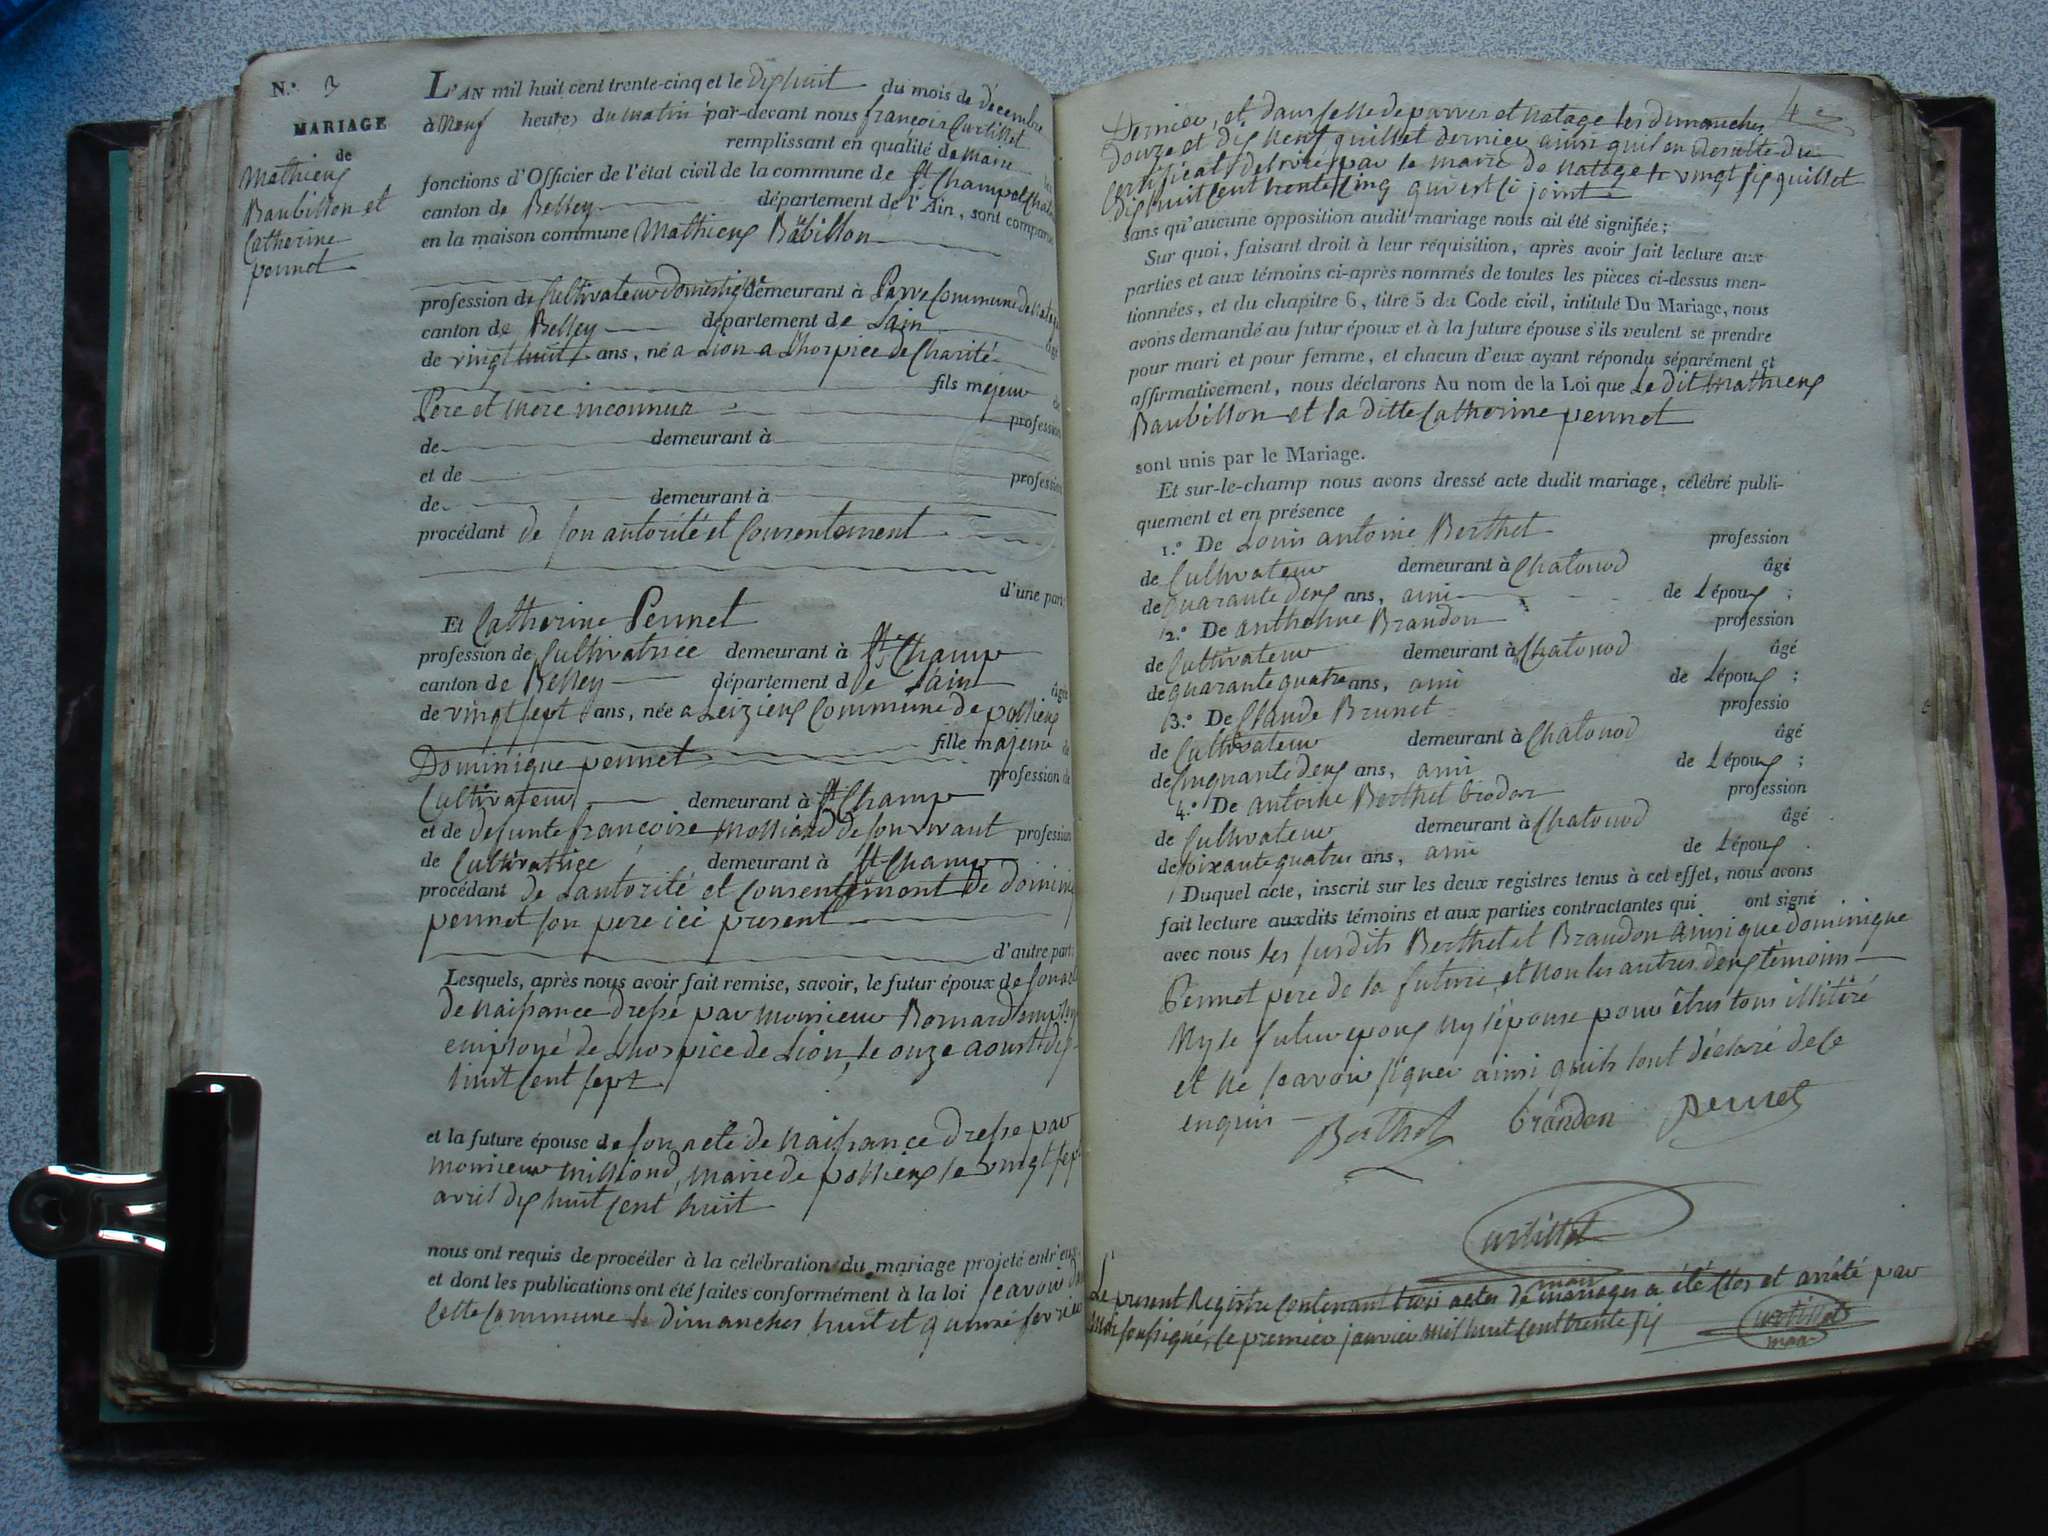 N.º 3
MARIAGE
de
Mathieux
Baubillon et
Catherine
pennet
L'AN mil huit cent trente-cinq et le dix huit du mois de décembre
à neuf heures du matin par-devant nous francois Curtillet
remplissant en qualité de maire les
fonctions d'Officier de l'état civil de la commune de St Champ et Chato
canton de Belley département de l'Ain, sont comparus
en la maison commune Mathieux Bâbillon
profession de Cultivateur Domestique demeurant à Parve Commune de Natage
canton de Belley département de Lain âgé
de vingt huit ans, né a Lion a Lhospice de Charité
fils majeur de
Pere et Mere inconnux profession
de demeurant à
et de profession
de demeurant à
procédant de son autorité et Consentement
d'une part
Et Catherine Pennet
profession de Cultivatrice demeurant à St Champ
canton de Belley département de Lain âgée
de vingt sept ans, née a Leyzieux Commune de pollieux
fille majeure de
Dominique pennet profession de
Cultivateur demeurant à St Champ
et de defunte francoise Molliard de son vivant profession
de Cultivatrice demeurant à St Champ
procédant de Lautorité et Consentement de dominique
pennet son pere ici present
d'autre part:
Lesquels, après nous avoir fait remise, savoir, le futur époux de son acte
de Naissance dressé par monsieur Bornard employ
employé de Lhospice de Lion, le onze aoust dix
huit Cent sept
et la future épouse de son acte de Naissance dressé par
monsieur milliond, maire de pollieux le vingt sept
avril dix huit Cent huit
nous ont requis de procéder à la célébration du mariage projeté entr'eux,
et dont les publications ont été faites conformément à la loi scavoir dans
Cette Commune le dimanches huit et quinze fevrier
4
Dernier, et dans Celle de parves et Natage les dimanches
Douze et dix neuf quillet dernier ainsi quil en Resulte du
Certificat delivré par le maire de Natage le vingt six quillet
dix huit Cent trente Cinq qui est Ci joint
sans qu'aucune opposition audit mariage nous ait été signifiée;
Sur quoi, faisant droit à leur réquisition, après avoir fait lecture aux
parties et aux témoins ci-après nommés de toutes les pièces ci-dessus men-
tionnées, et du chapitre 6, titre 5 du Code civil, intitulé Du Mariage, nous
avons demandé au futur époux et à la future épouse s'ils veulent se prendre
pour mari et pour femme, et chacun d'eux ayant répondu séparément et
affirmativement, nous déclarons Au nom de la Loi que Le dit Mathieux
Baubillon et la ditte Catherine pennet
sont unis par le Mariage.
Et sur-le-champ nous avons dressé acte dudit mariage, célébré publi-
quement et en présence
1.º De Louis antoine Berthet profession
de Cultivateur demeurant à Chatonod âgé
de quarante deux ans, ami de Lépoux;
2.º De anthelme Brandon profession
de Cultivateur demeurant à Chatonod âgé
de quarante quatre ans, ami de Lépoux;
3.º De Claude Brunet professio
de Cultivateur demeurant à Chatonod âgé
de Cinquante deux ans, ami de Lépoux;
4.º De antoine Berthet profession
de Cultivateur demeurant à Chatonod âgé
de soixante quatre ans, ami de Lépoux.
Duquel acte, inscrit sur les deux registres tenus à cet effet, nous avons
fait lecture auxdits témoins et aux parties contractantes qui ont signé
avec nous les susdits Berthet et Brandon ainsi que dominique
Pennet pere de la future, et non les autres deux témoins
Ny le futur epoux Ny l'épouse pour êtres tous illitéré
et ne scavoir signer ainsi quils lont déclaré de Ce
enquis
Berthet brandon Pennet
Curtillet
maire
Le present Registre Contenant trois actes de mariages a été Clos et arrêté par
Nous soussigné, le premier janvier mil huit Cent trente six Curtillet
maire